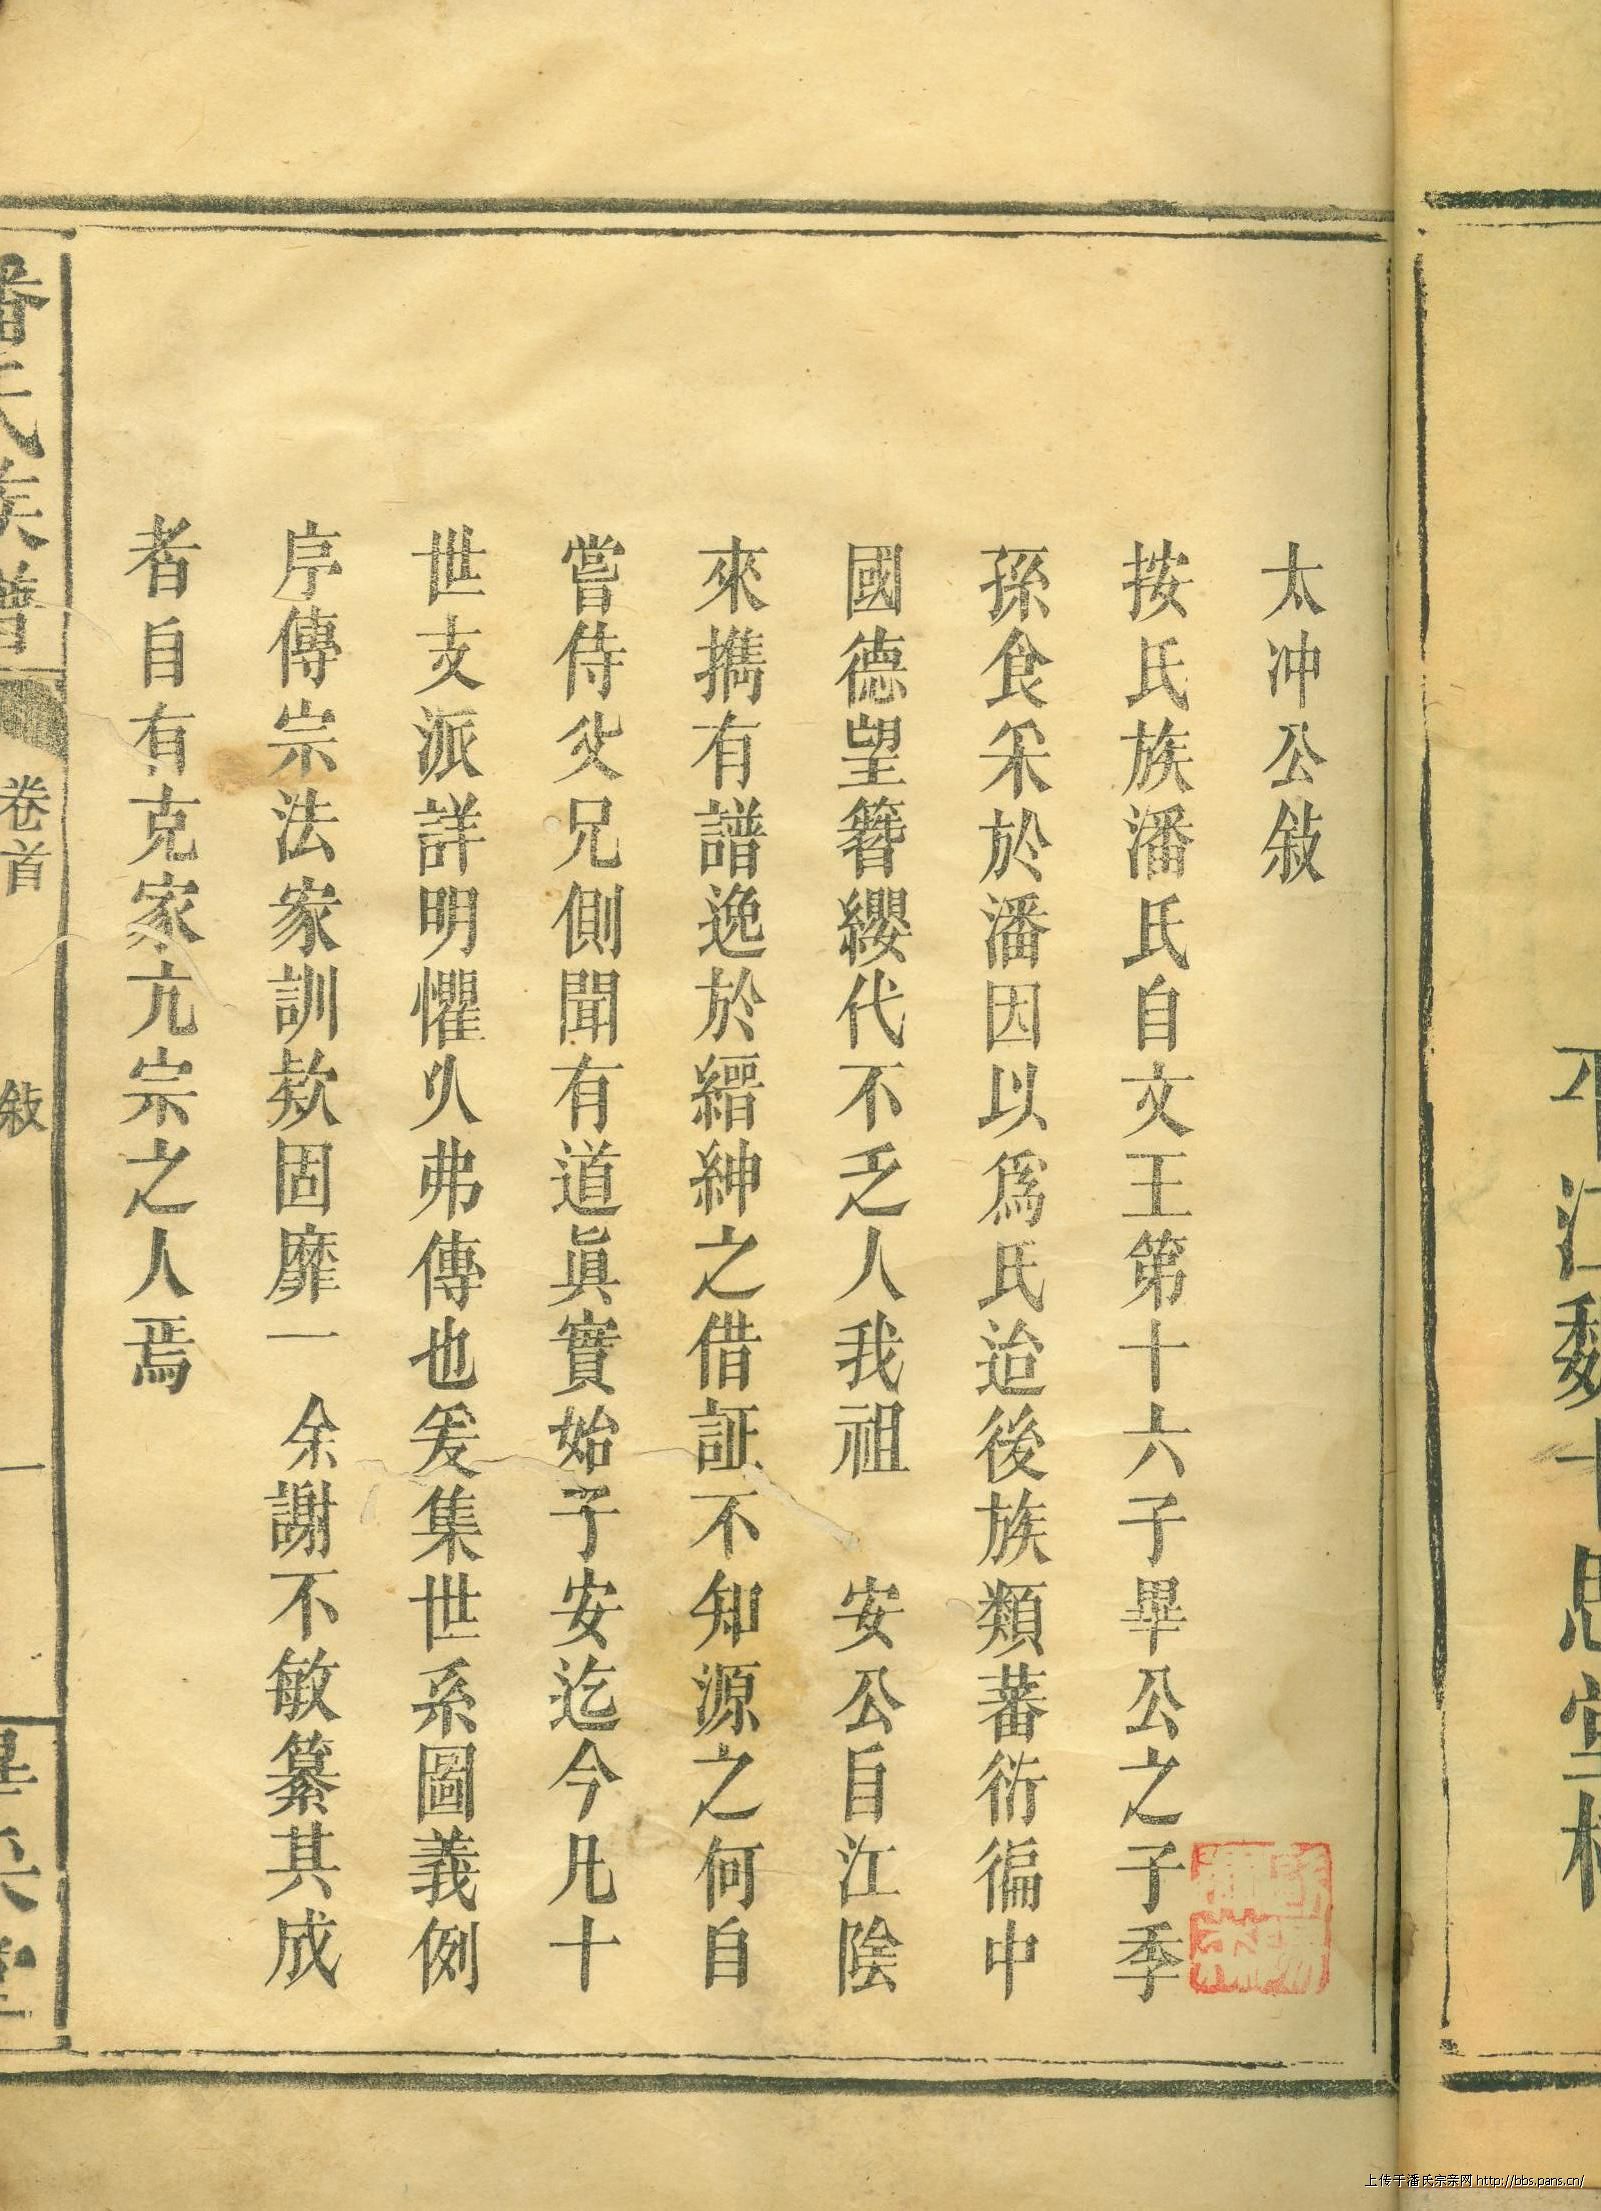 平江魏十思堂梓
太冲公敍
按氏族潘氏自文王第十六子畢公之子季
孫食采於潘因以爲氏迨後族類蕃衍徧中
國德望簪纓代不乏人我祖　安公自江陰
來攜有譜逸於縉紳之借証不知源之何自
嘗侍父兄側聞有道眞實始于安迄今凡十
世支派詳明懼久弗傳也爰集世系圖義例
序傳宗法家訓欵固靡一余謝不敏纂其成
者自有克家亢宗之人焉
潘氏族譜
卷首
敍
一
上传于潘氏宗亲网 http://bbs.pans.cn/